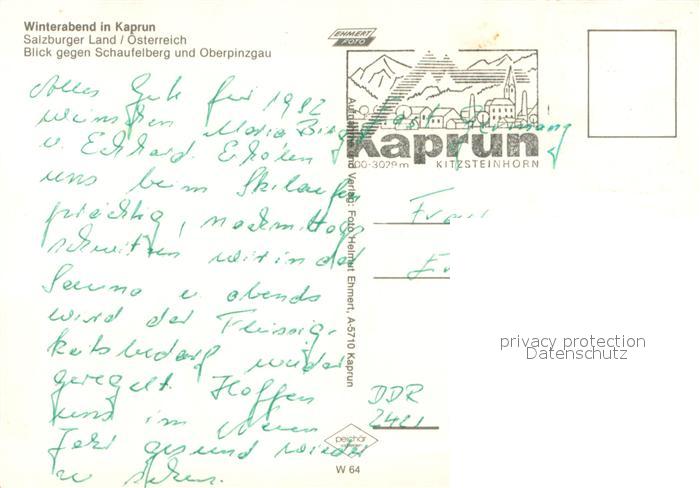 Winterabend in Kaprun
Salzburger Land / Österreich
Blick gegen Schaufelberg und Oberpinzgau
EHMERT
FOTO
Alles Gute für 1982
wünschen Maria, Birgit
u. Eckhard. Erholen
uns beim Skilaufen
prächtig, nachmittags
schwitzen wir in der
Sauna u. abends
wird der Flüssig-
keitsbedarf wieder
geregelt. Hoffen
uns im neuen
Jahr gesund wieder
zu sehen.
Kaprun
3029m KITZSTEINHORN
Aufnahme und Verlag: Foto Helmut Ehmert, A-5710 Kaprun
DDR
2421
privacy protection
Datenschutz
peichär
W 64